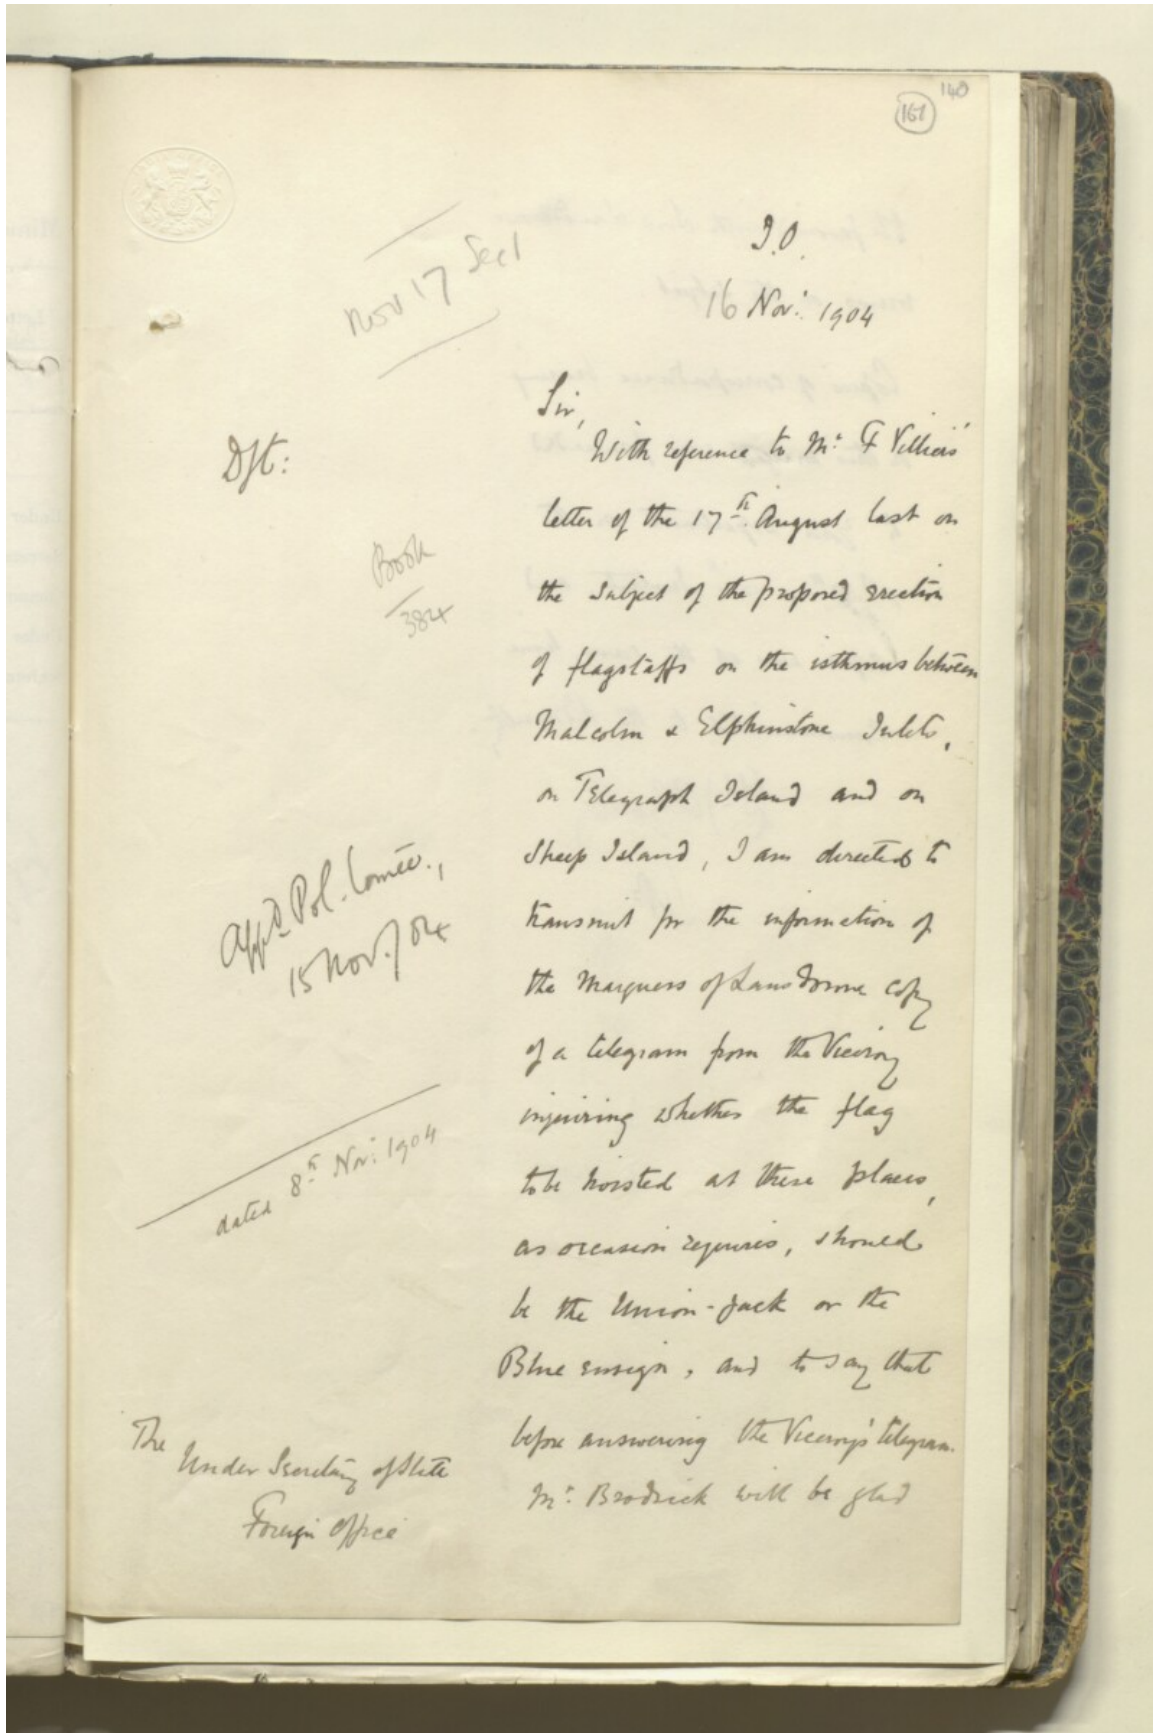 140
161
I.O.
16 Nov: 1904
Nov 17 Sec1
Dft:
Book
384
Appd Pol. Comee.,
15 Nov./04
dated 8th Nov: 1904
The
Under Secretary of State
Foreign Office
Sir,
With reference to Mr. F Villiers'
letter of the 17th August last on
the subject of the proposed erection
of flagstaffs on the isthmus between
Malcolm & Elphinstone Inlets,
on Telegraph Island and on
Sheep Island, I am directed to
transmit for the information of
the Marquess of Lansdowne copy
of a telegram from the Viceroy
inquiring whether the flag
to be hoisted at these places,
as occasion requires, should
be the Union-Jack or the
Blue ensign, and to say that
before answering the Viceroy's telegram
Mr. Brodrick will be glad